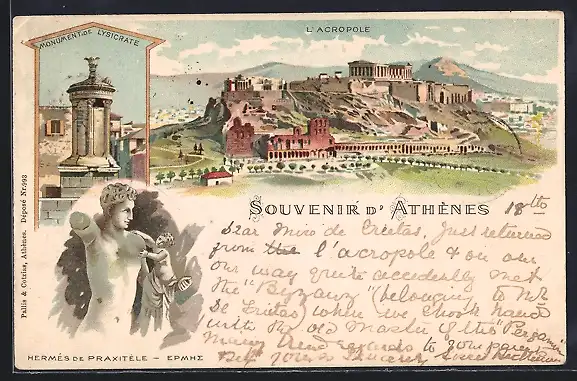 MONUMENT DE LYSICRATE
L'ACROPOLE
Pallis & Cotzias, Athènes. Déposé Nr. 993
SOUVENIR D'ATHÈNES
18
Dear Miss de Freitas, Just returned
from the l'acropole & on our
our way quite accidently met
the " " (belonging to Mr
De Freitas) where we shook hands
with the old Master of the " "
Many kind regards to your parents
Yours Sincerely
HERMÈS DE PRAXITÈLE – ΕΡΜΗΣ